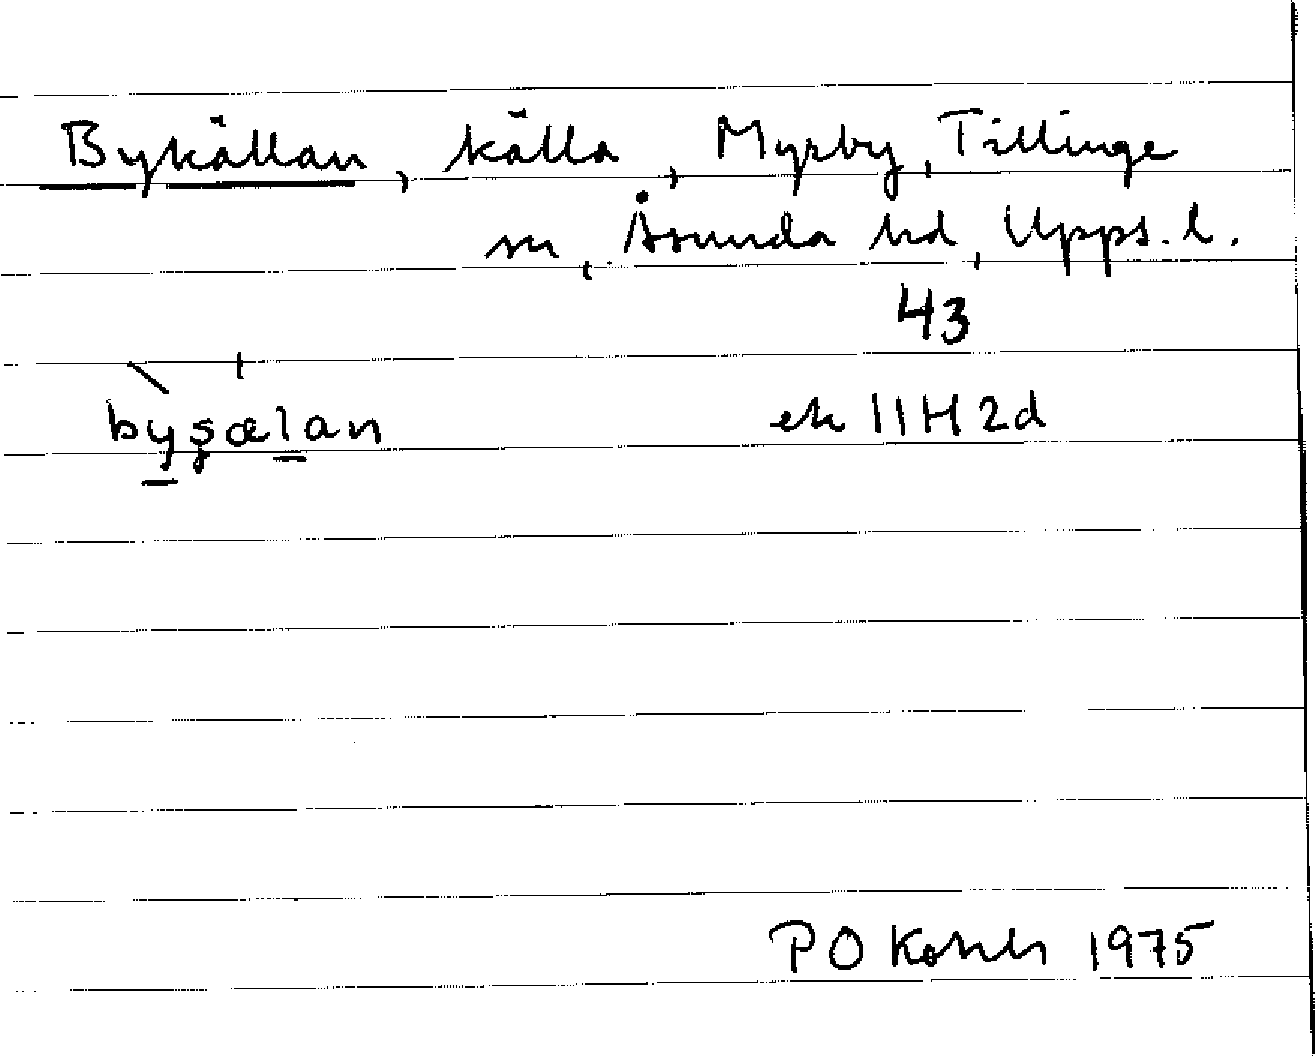 Bykällan, källa, Myrby, Tillinge
sn, Åsunda hd, Upps. l.
43
byşælan
ek 11H 2d
P O 1975